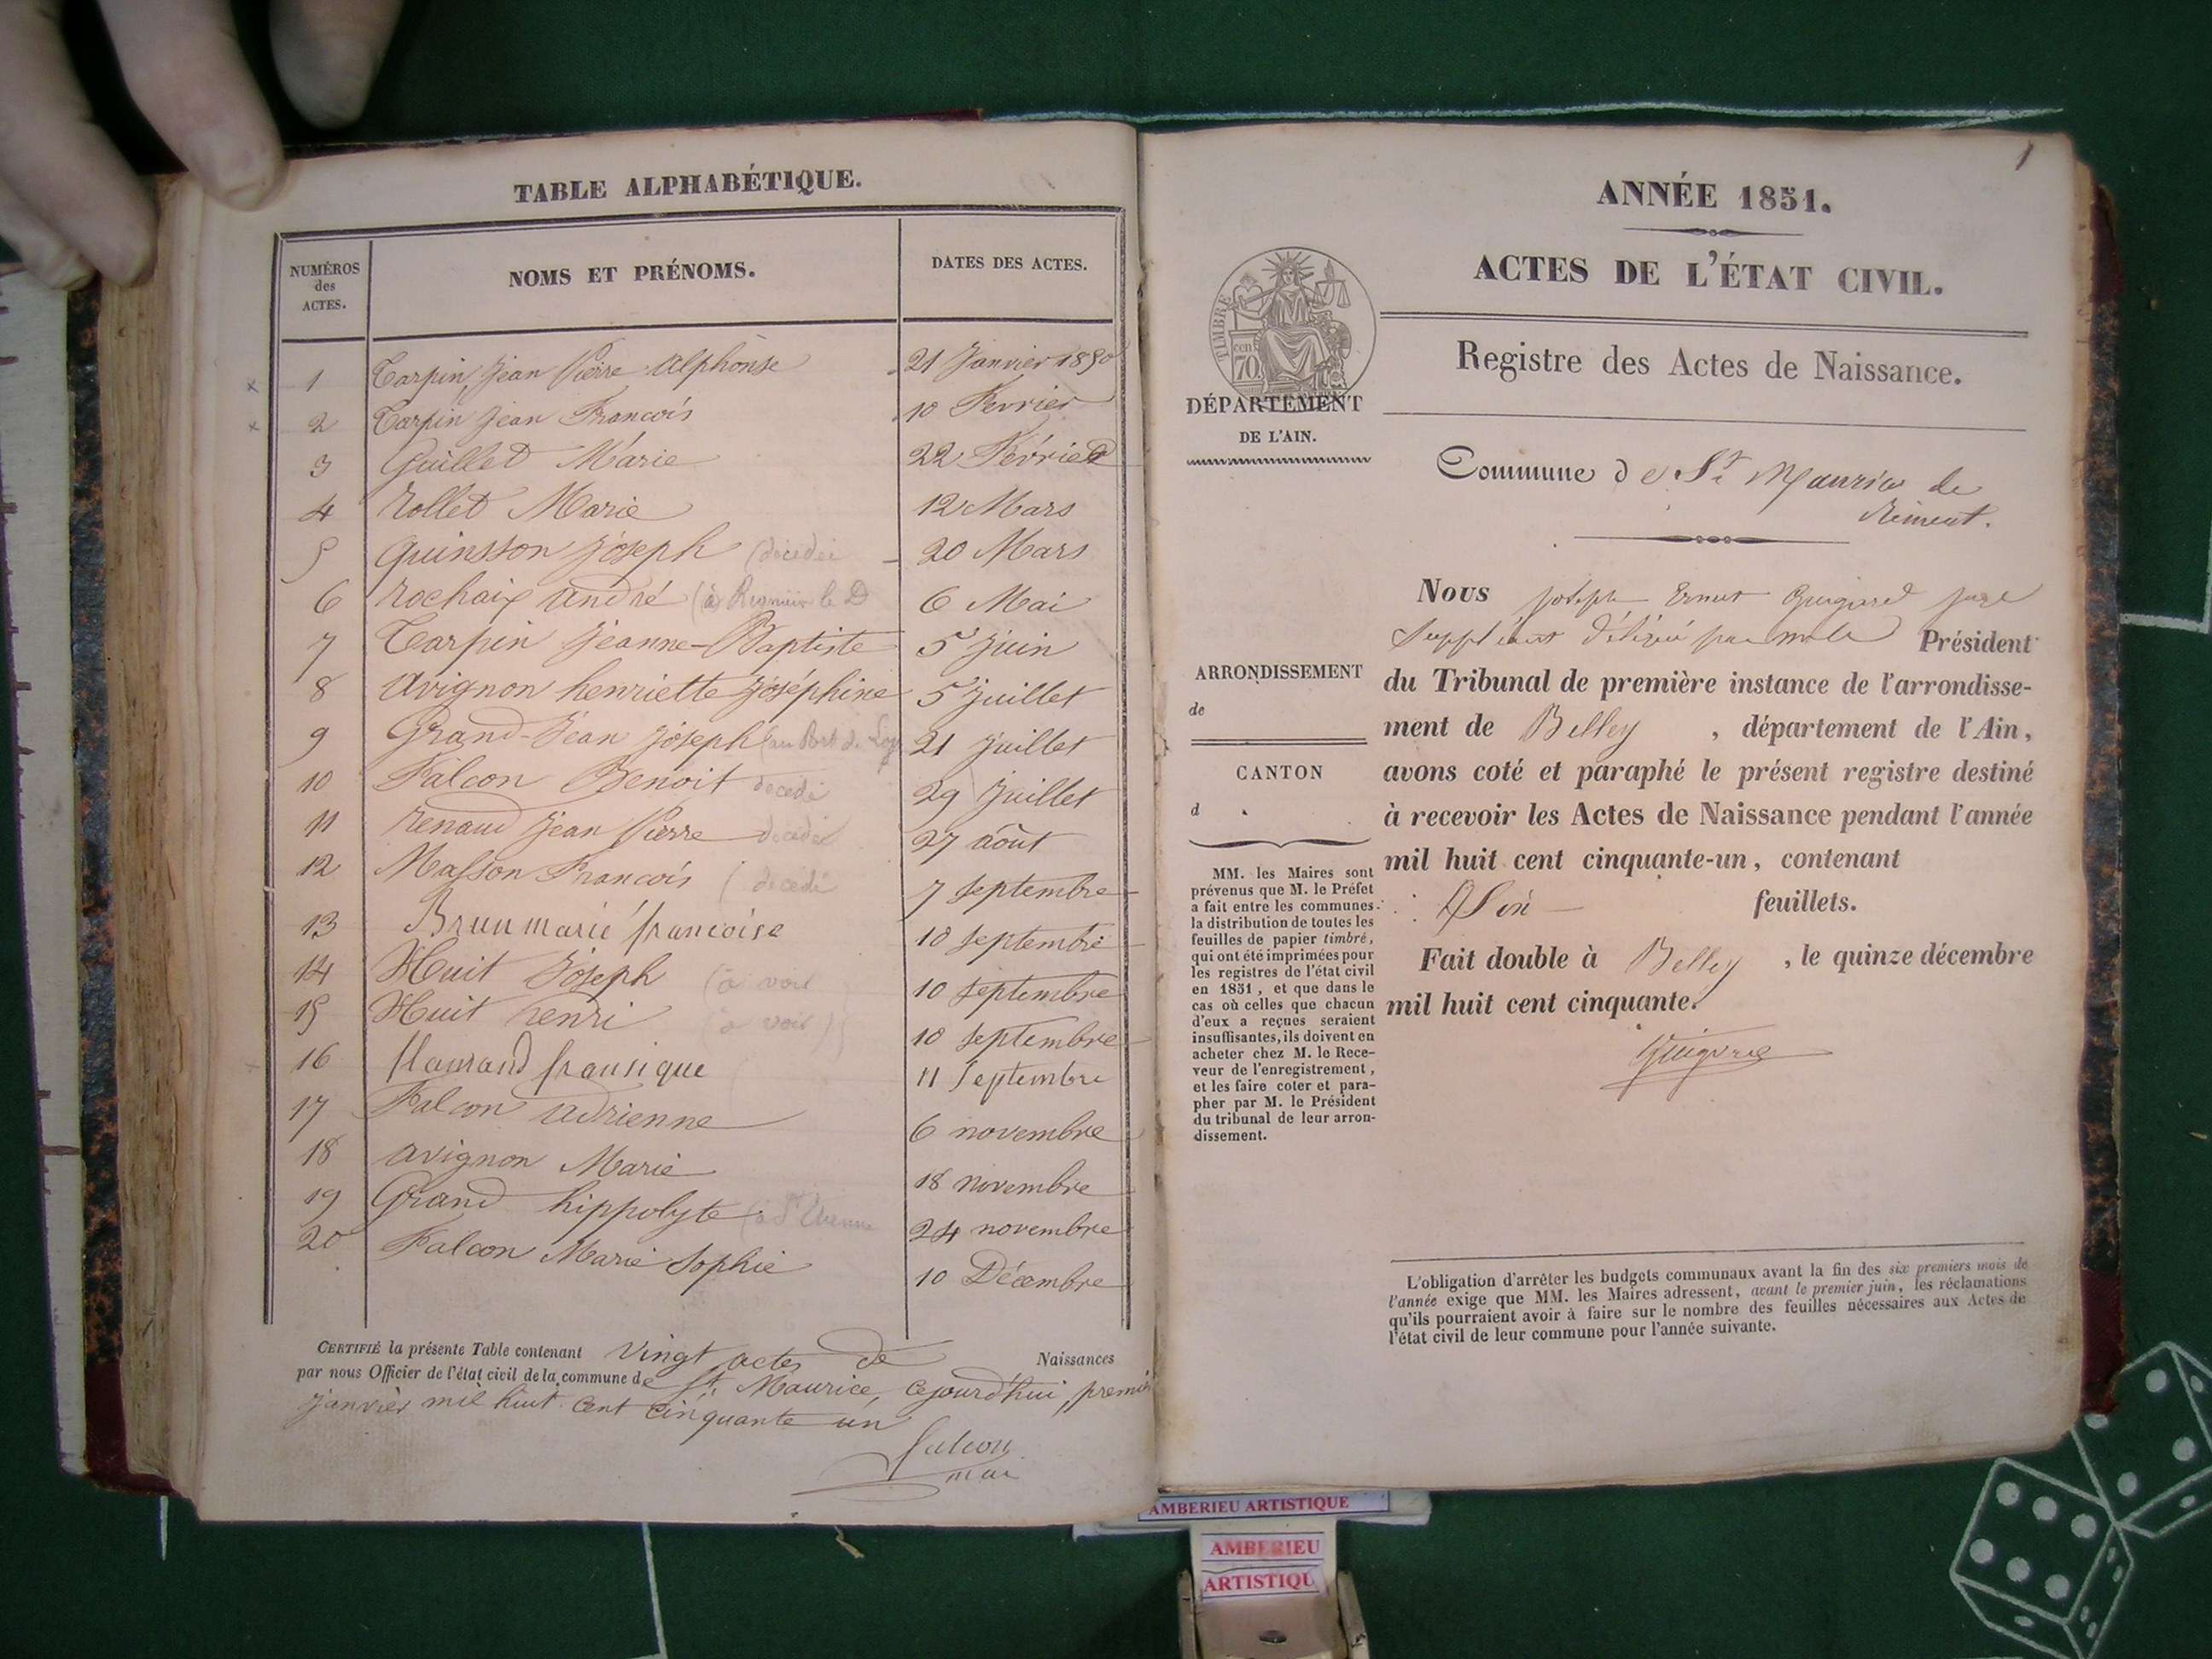 TABLE ALPHABÉTIQUE.
NUMÉROS des ACTES.
NOMS ET PRÉNOMS.
DATES DES ACTES.
1 Carpin Jean Pierre Alphonse 21 Janvier 1850
2 Carpin Jean Francois 10 Fevrier
3 Guillet Marie 22 Février
4 Rollet Marie 12 Mars
5 Guinsson Joseph (décédé 20 Mars
6 Rochaix andré (à le D 6 Mai
7 Carpin Jeanne-Baptiste 5 Juin
8 Avignon henriette Joséphine 5 Juillet
9 Grand-Jean Joseph (au Port de 21 Juillet
10 Falcon Benoit décédé 29 Juillet
11 Renaud Jean Pierre décédé 27 août
12 Masson Francois (décédé 7 Septembre
13 Brun marie francoise 10 Septembre
14 Huit Joseph (à voir 10 Septembre
15 Huit henri (à voir) 10 Septembre
16 flaurand fransique 11 Septembre
17 Falcon adrienne 6 novembre
18 avignon Marie 18 novembre
19 Grand hippolyte (à St Etienne 24 novembre
20 Falcon Marie Sophie 10 Décembre
CERTIFIÉ la présente Table contenant vingt actes de Naissances
par nous Officier de l'état civil de la commune de St. Maurice, cejourd'hui, premier
Janvier mil huit cent cinquante un
falcon
mai
1
ANNÉE 1851.
ACTES DE L'ÉTAT CIVIL.
Registre des Actes de Naissance.
TIMBRE
70 cen
DÉPARTEMENT
DE L'AIN.
Commune de St Maurice de
Rément.
ARRONDISSEMENT
de
CANTON
d
MM. les Maires sont
prévenus que M. le Préfet
a fait entre les communes
la distribution de toutes les
feuilles de papier timbré,
qui ont été imprimées pour
les registres de l'état civil
en 1851, et que dans le
cas où celles que chacun
d'eux a reçues seraient
insuffisantes, ils doivent en
acheter chez M. le Rece-
veur de l'enregistrement,
et les faire coter et para-
pher par M. le Président
du tribunal de leur arron-
dissement.
Nous Joseph Ernest Guigard juge
Suppléant délégué par mr le Président
du Tribunal de première instance de l'arrondisse-
ment de Belley, département de l'Ain,
avons coté et paraphé le présent registre destiné
à recevoir les Actes de Naissance pendant l'année
mil huit cent cinquante-un, contenant
feuillets.
Fait double à Belley, le quinze décembre
mil huit cent cinquante.
L'obligation d'arrêter les budgets communaux avant la fin des six premiers mois de
l'année exige que MM. les Maires adressent, avant le premier juin, les réclamations
qu'ils pourraient avoir à faire sur le nombre des feuilles nécessaires aux Actes de
l'état civil de leur commune pour l'année suivante.
AMBERIEU ARTISTIQUE
AMBERIEU
ARTISTIQU